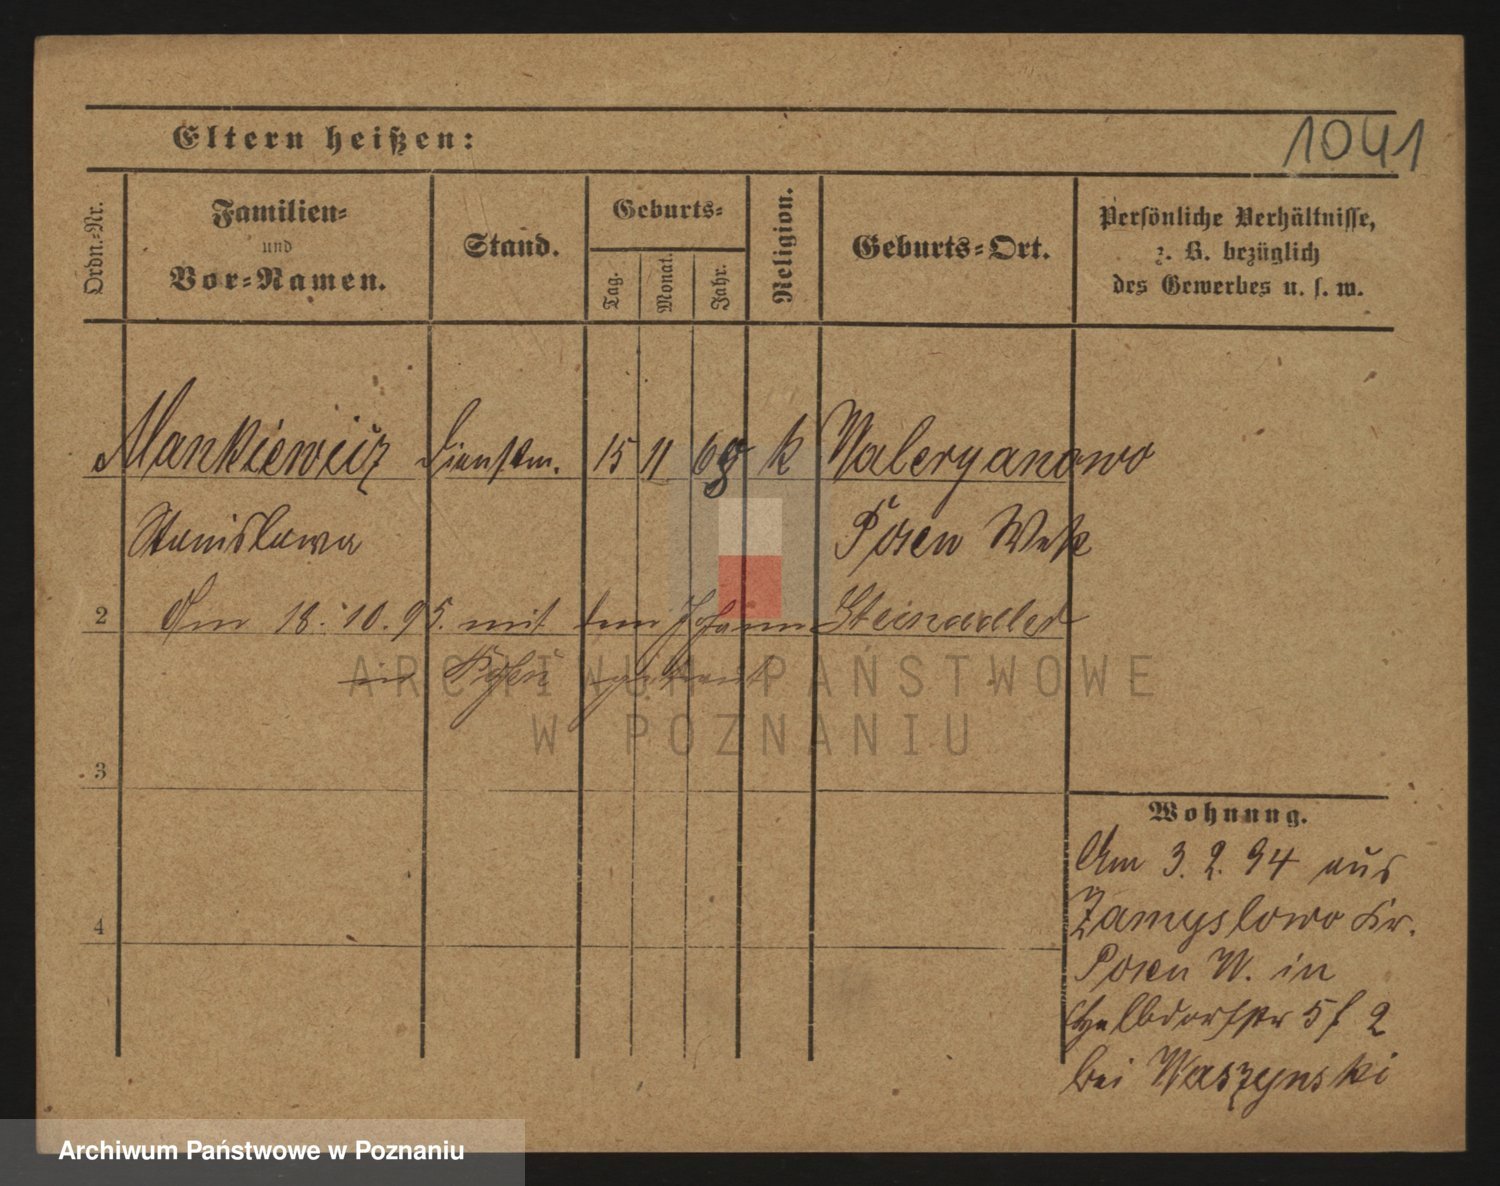 1041
Eltern heißen:
Ordn.-Nr.
Familien-
und
Vor-Namen.
Stand.
Geburts-
Tag.
Monat.
Jahr.
Religion.
Geburts-Ort.
Persönliche Verhältnisse,
z. B. bezüglich
des Gewerbes u. s. w.
Mankiewicz Dienstm. 15 11 68 k Waleryanowo
Stanislawa Posen West
2 Am 18. 10. 95. mit dem Johann Steinadler
in
3
4
Wohnung.
Am 3. 2. 94 aus
Zamyslowo Kr.
Posen W. in
Halbdorfstr 5 2
bei Waszynski
ARCHIWUM PAŃSTWOWE
W POZNANIU
Archiwum Państwowe w Poznaniu